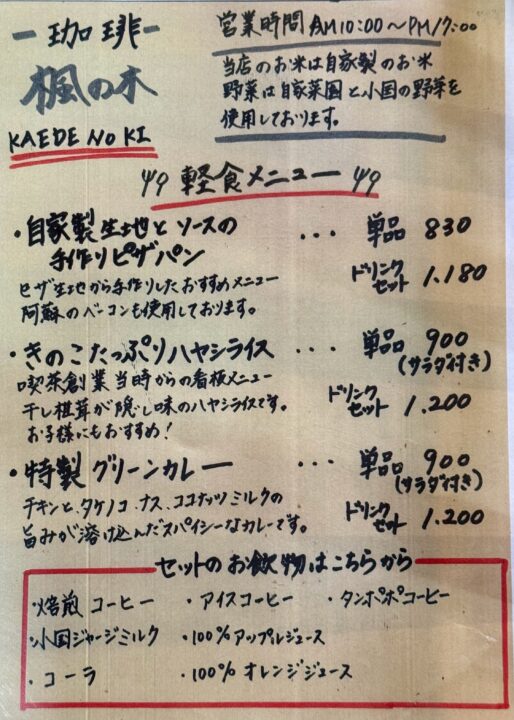 ー珈琲ー
楓の木
KAEDE NO KI
営業時間 AM10:00〜PM17:00
当店のお米は自家製のお米
野菜は自家菜園と小国の野菜を
使用しております。
軽食メニュー
・自家製生地とソースの
手作りピザパン
... 単品 830
ドリンクセット 1.180
ピザ生地から手作りしたおすすめメニュー
阿蘇のベーコンも使用しております。
・きのこたっぷりハヤシライス ... 単品 900
(サラダ付き)
喫茶創業当時からの看板メニュー
干し椎茸が隠し味のハヤシライスです。
お子様にもおすすめ!
ドリンクセット 1.200
・特製グリーンカレー ... 単品 900
(サラダ付き)
チキンと、タケノコ、ナス、ココナッツミルクの
旨みが溶け込んだスパイシーなカレーです。
ドリンクセット 1.200
セットのお飲物はこちらから
・焙煎コーヒー ・アイスコーヒー ・タンポポコーヒー
・小国ジャージミルク ・100%アップルジュース
・コーラ ・100%オレンジジュース